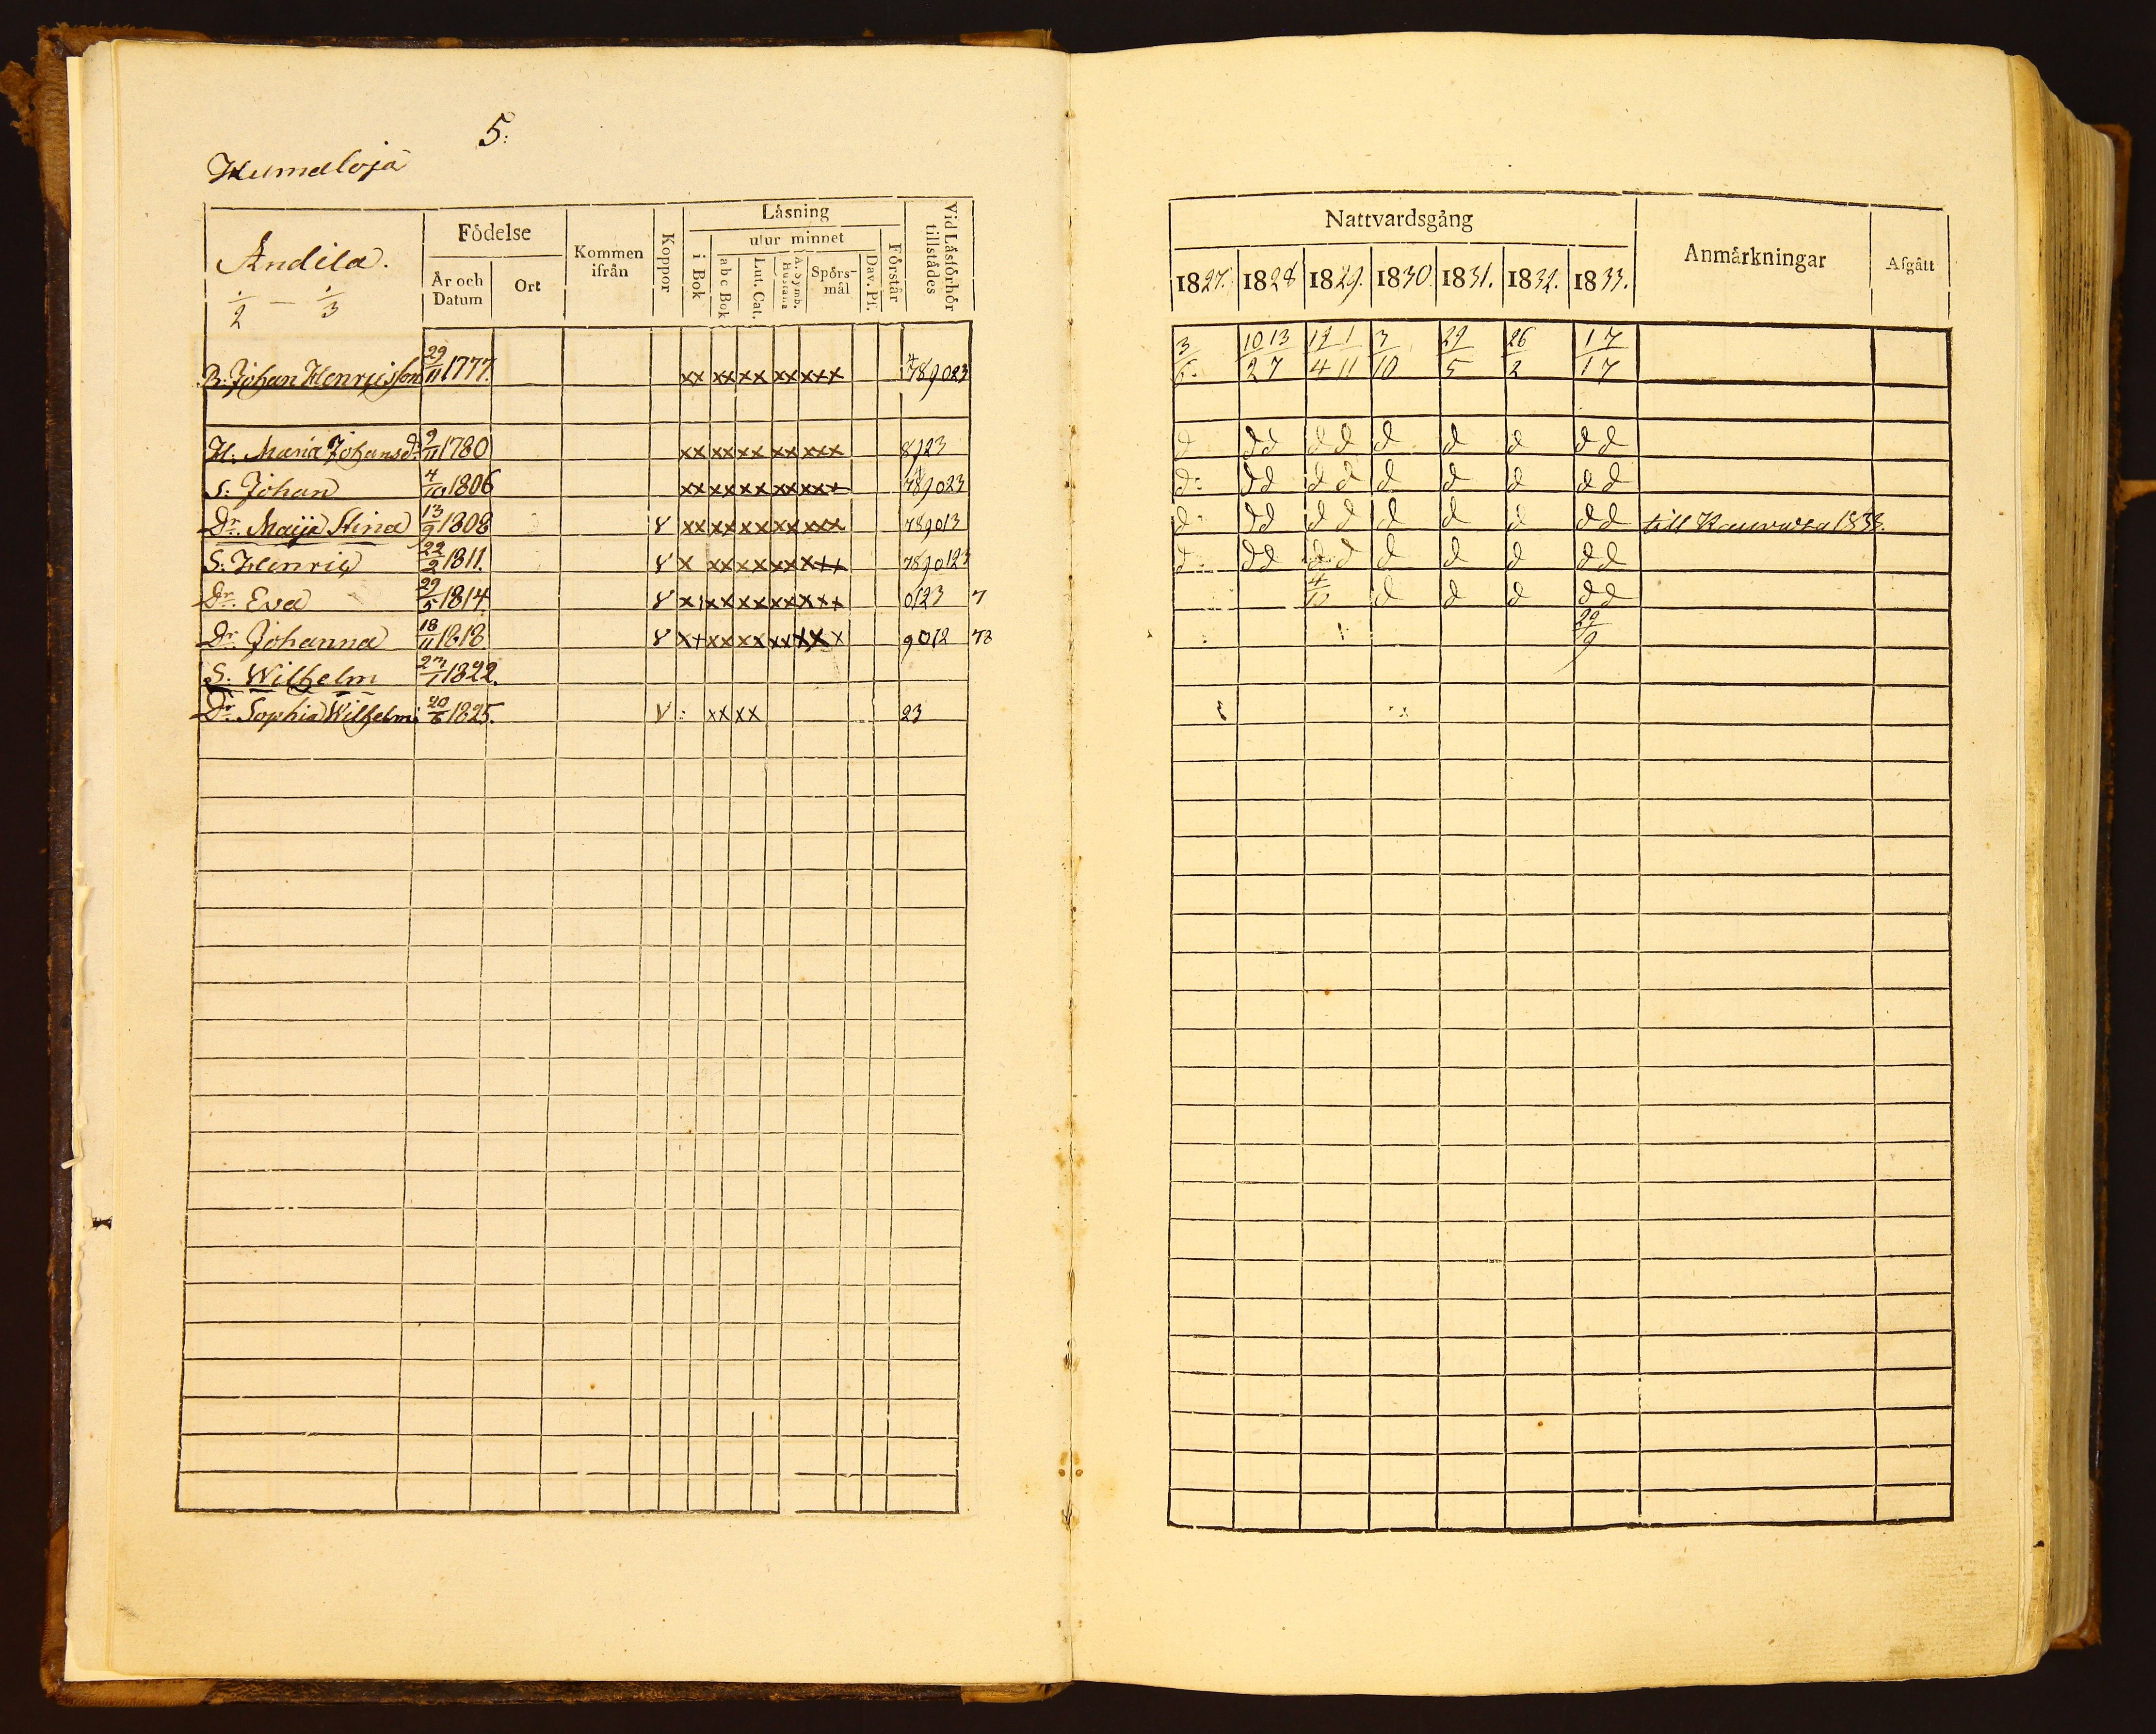 5:
Humaloja
Andila.
1/2 — 1/3
Födelse
År och Datum
Ort
Kommen ifrån
Koppor
Läsning
i Bok
utur minnet
a b c Bok
Lut. Cat.
A. Symb. Hustafla
Spörs-mål
Dav. Ps.
Förstår
Vid Läsförhör tillstädes
B. Johan Henricsson 29/11 1777. xx xx xx xx xxx 789023
H. Maria Johansd. 9/11 1780 xx xx xx xx xxx 8923
S. Johan 4/10 1806 xx xx xx xx xxx 789023
Dr. Maija Stina 13/9 1808 v xx xx xx xx xxx 78913
S. Henric 22/2 1811. v x xx xx xx xxx 7890123
Dr. Eva 29/5 1814 v x xx xx xx xxx 0123 7
Dr. Johanna 18/11 1818. v xx xx xx xx xxx 9012 73
S. Wilhelm 27/1 1822.
Dr. Sophia Wilhelm: 20/6 1825. v: xx xx 23
Nattvardsgång
Anmärkningar
Afgått
1827. 1828 1829. 1830. 1831. 1832. 1833.
3/6. 10/2 13/7 12/4 1/11 3/10 29/5 26/2 1/1 7/7
d dd dd d d d dd
d: dd dd d d d dd
d: dd dd d d d dd till 1833.
d: dd dd d d d dd
4/10 d d d dd
29/9